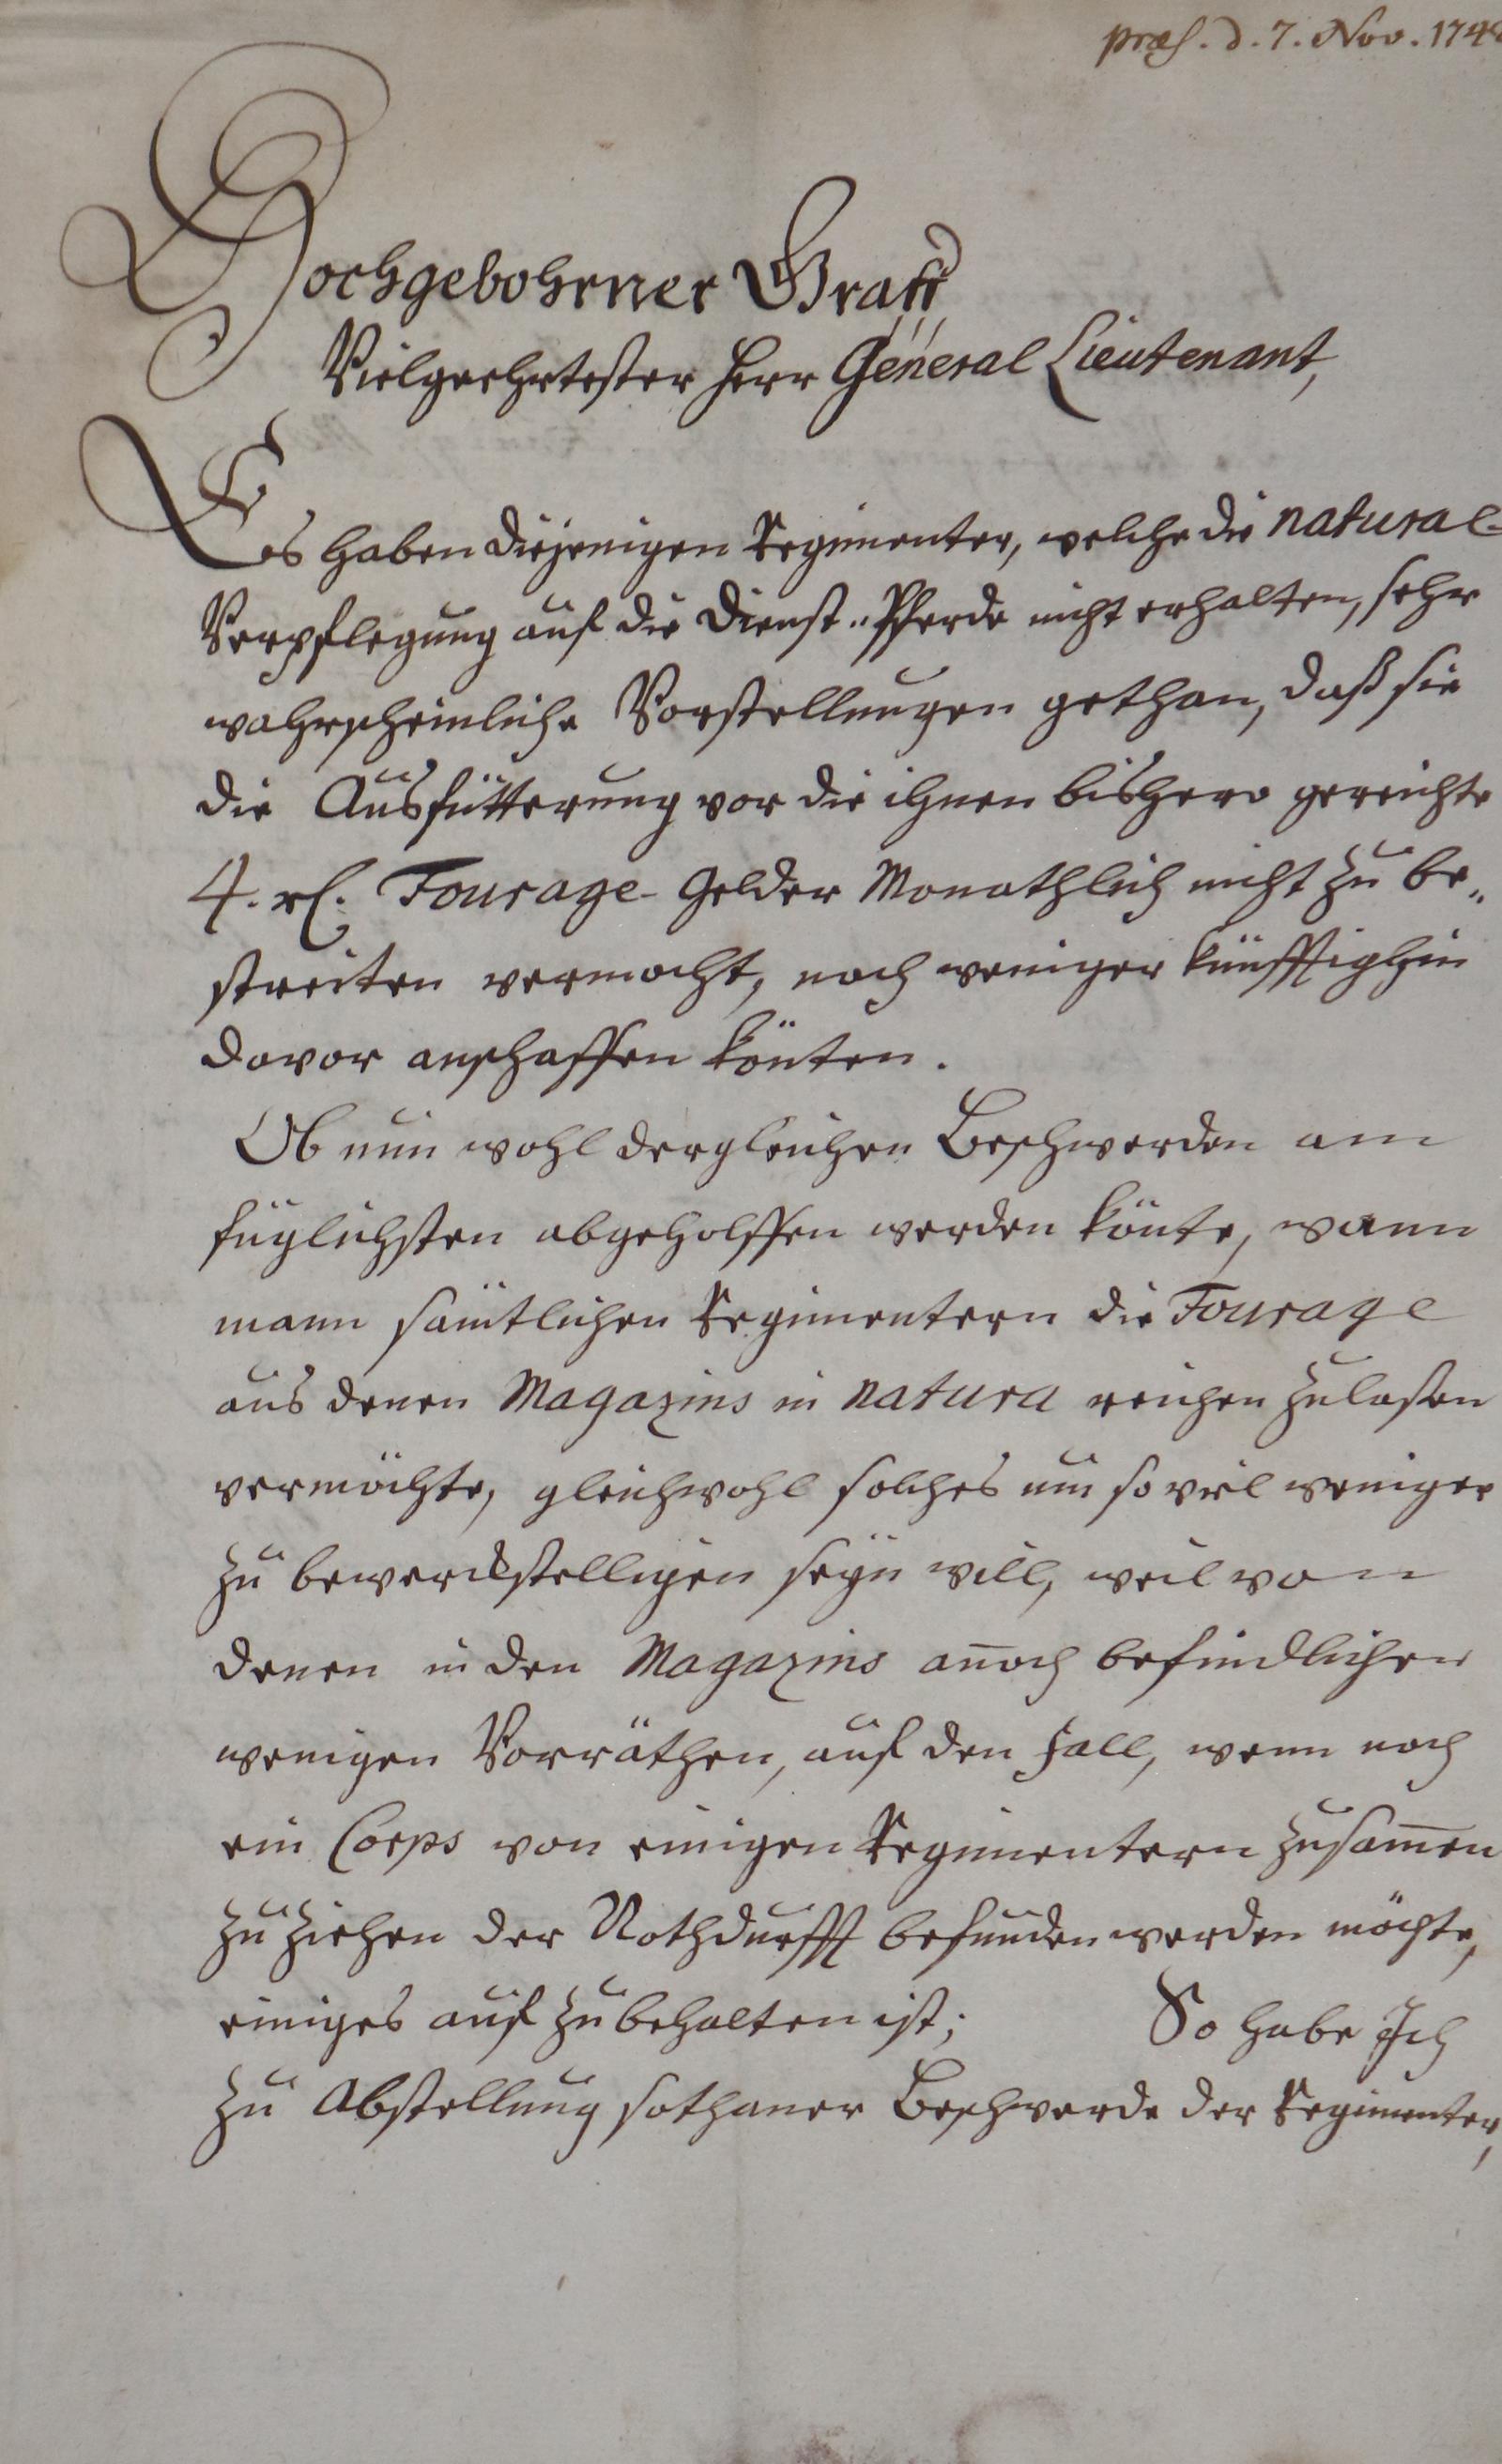 præs. d. 7. Nov. 174
Hochgebohrner Graff
Vielgeehrtester Herr General Lieutenant,
Es haben diejenigen Regimenter, welche die natural-
Verpflegung auf die Dienst-Pferde nicht erhalten, sehr
wahrscheinliche Vorstellungen gethan, daß sie
die Ausfütterung vor die ihnen bishero gereichte
4. rl. Fourage-Gelder Monathlich nicht zu be-
streiten vermocht, noch weniger künfftighin
davor anschaffen könten.
Ob nun wohl dergleichen Beschwerden am
füglichsten abgeholffen werden könte, wann
mann sämtlichen Regimentern die Fourage
aus denen Magazins in natura reichen zulaßen
vermöchte, gleichwohl solches um so viel weniger
zu bewerckstelligen seyn will, weil von
denen in den Magazins annoch befindlichen
wenigen Vorräthen, auf den Fall, wenn noch
ein Corps von einigen Regimentern zusammen
zu ziehen der Nothdurfft befunden werden möchte,
einiges auf zu behalten ist; So habe Ich
zu Abstellung sothaner Beschwerde der Regimenter,